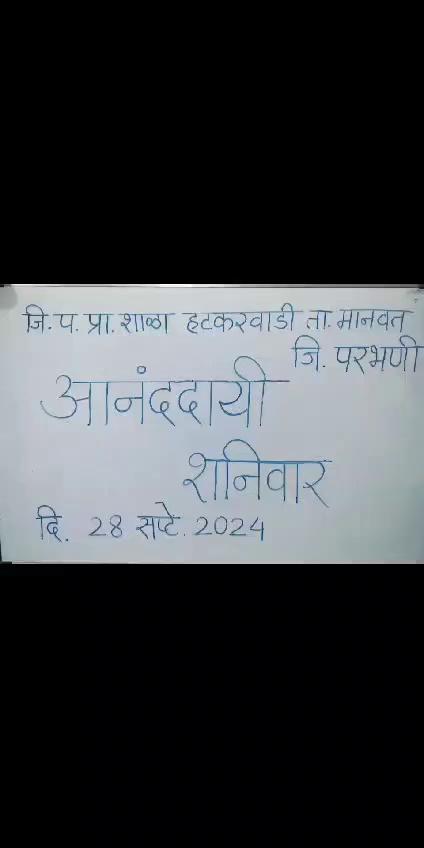 जि.प. प्रा. शाळा हटकरवाडी ता. मानवत
जि. परभणी
आनंददायी
शनिवार
दि. 28 सप्टे. 2024